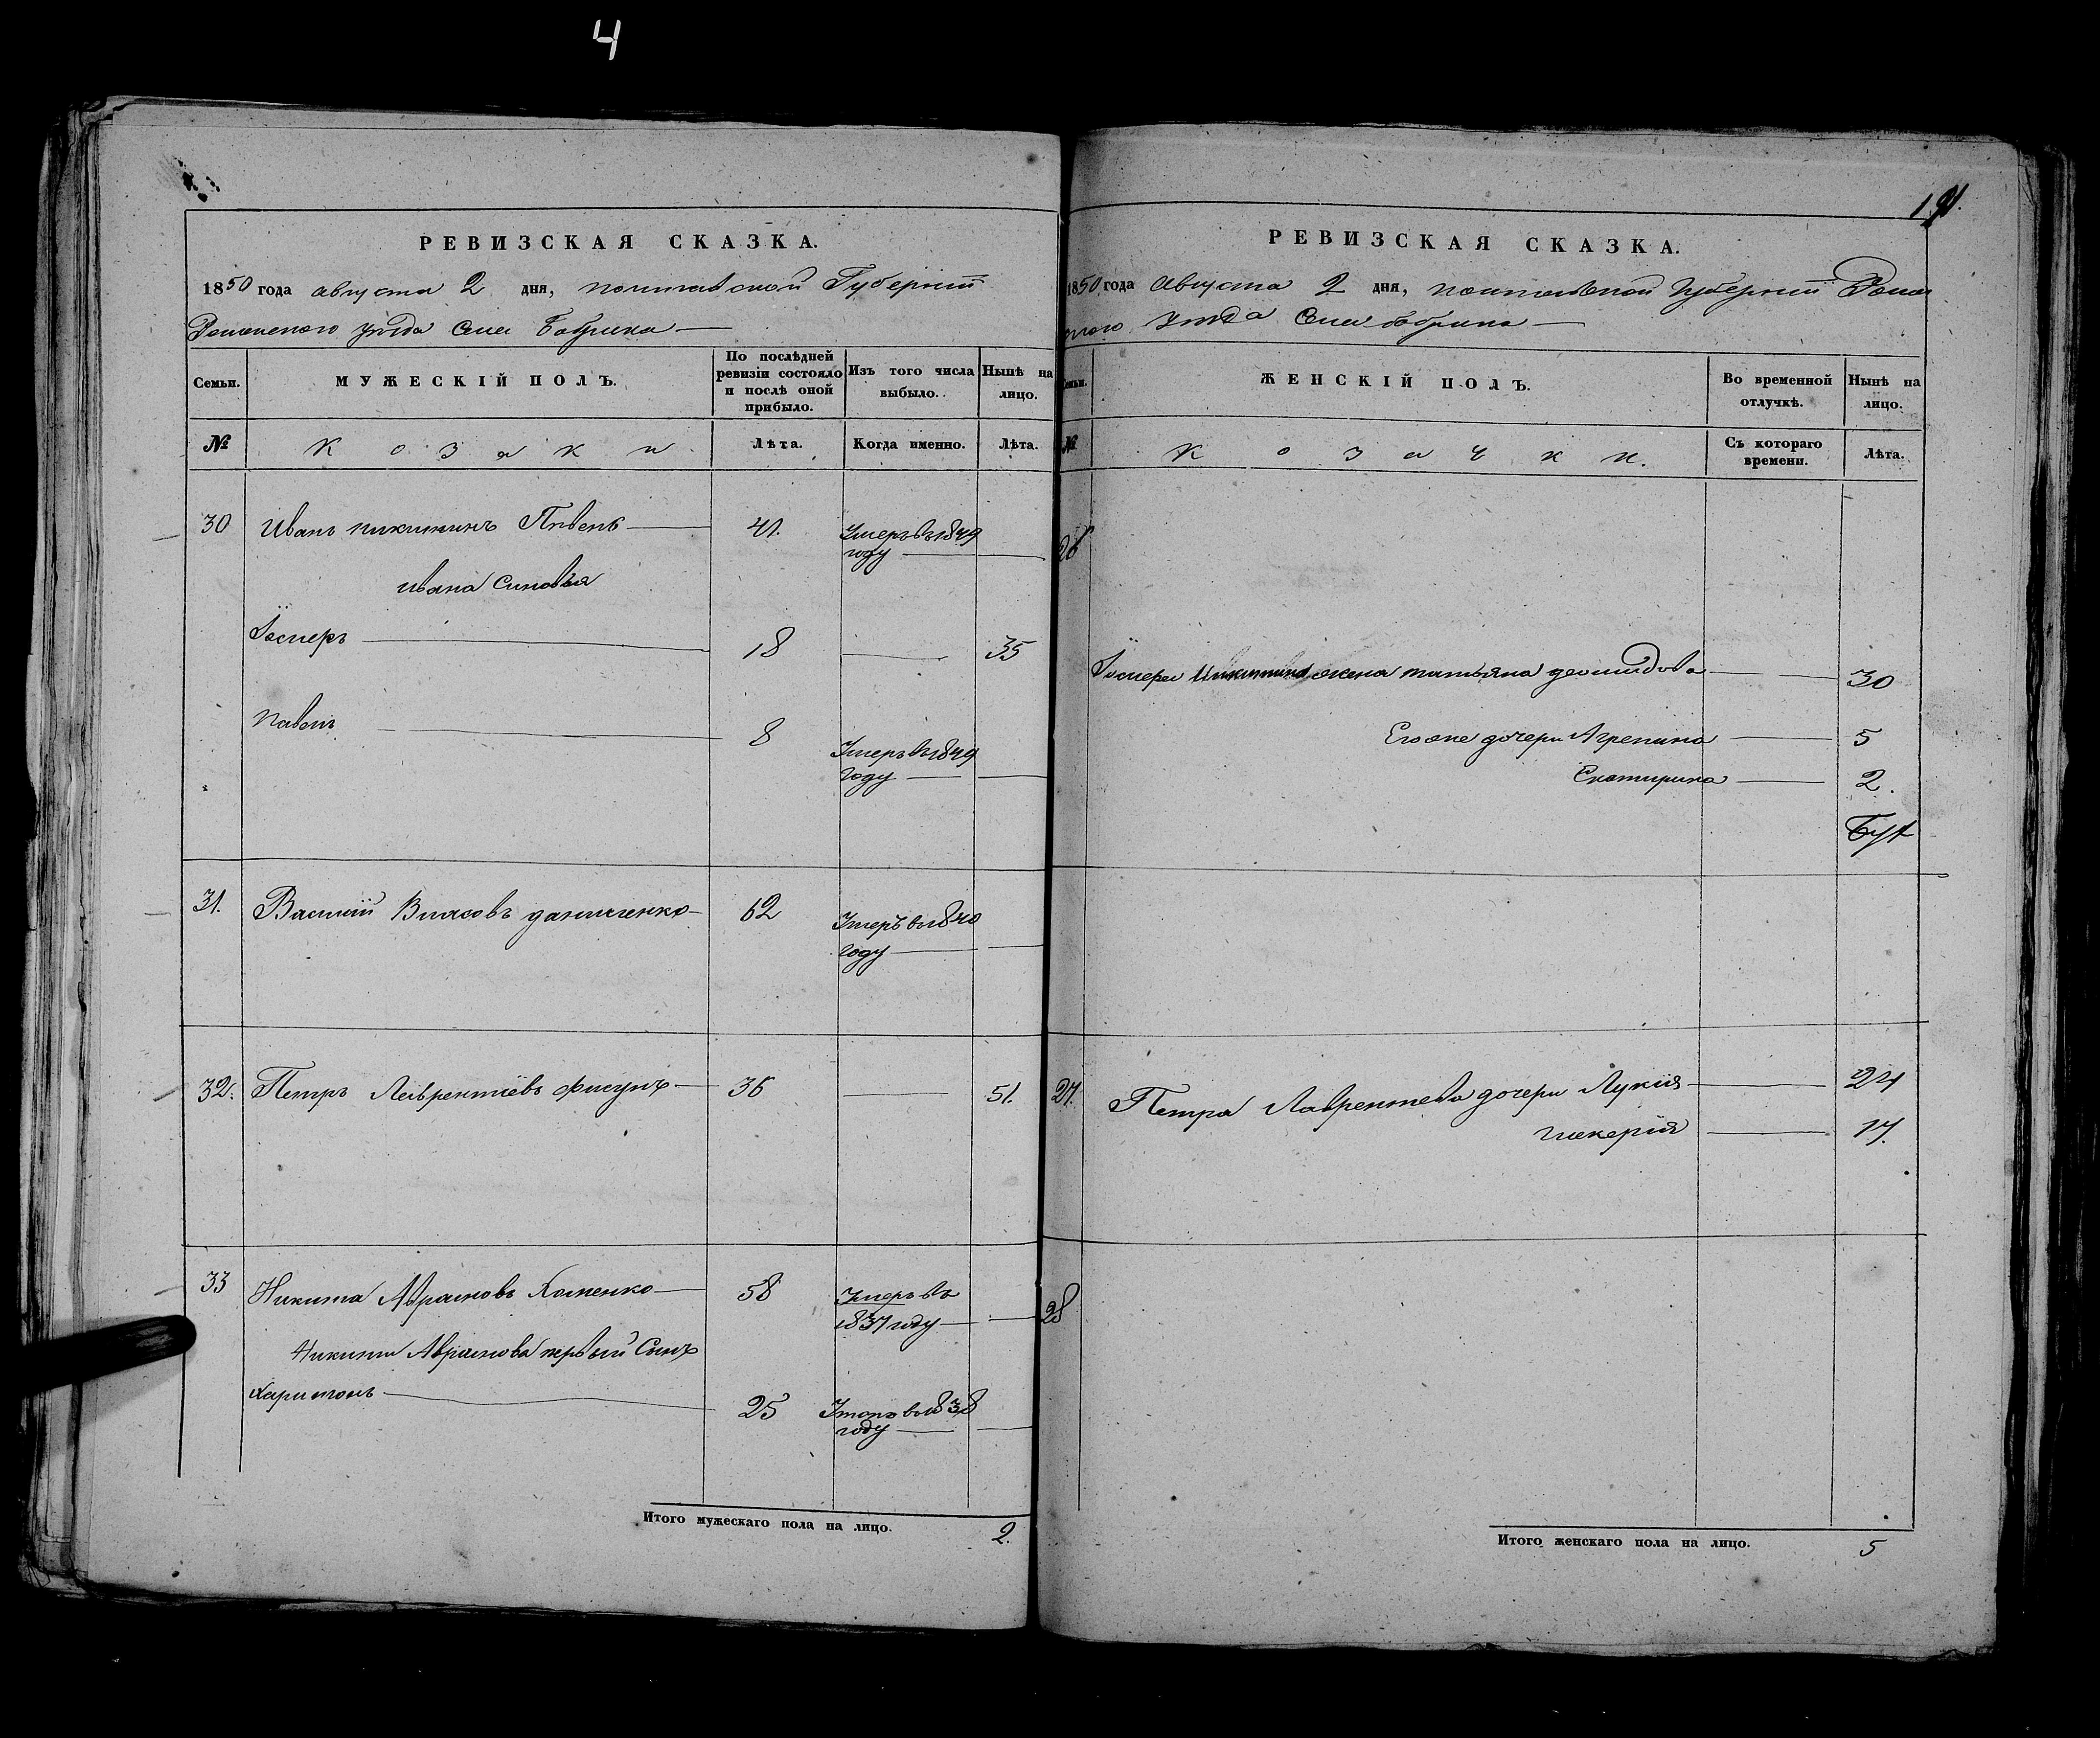 4
РЕВИЗСКАЯ СКАЗКА.
1850 года августа 2 дня, полтавской Губерніи
Роменского уезда Села Бобрика
Семьи.
МУЖЕСКІЙ ПОЛЪ.
По послѣдней ревизіи состояло и послѣ оной прибыло.
Изъ того числа выбыло.
Нынѣ на лицо.
№
Козаки
Лѣта.
Когда именно.
Лѣта.
30 Иванъ никитинъ Пѣвень 41. Умеръ въ 1849 году
ивана Синовья
Іосиеръ 18 35
Павелъ 8 Умеръ въ 1849 году
31. Василий Власовъ даниченко 62 Умеръ въ 1840 году
32. Петръ Лаврентіевъ Фисунъ 36 51.
33 Никита Аврамовъ Хоменко 58 Умеръ въ 1837 году
Никиты Аврамова первый Сынъ
Харитонъ 25 Утопъ в 1838 году
Итого мужескаго пола на лицо. 2.
191.
РЕВИЗСКАЯ СКАЗКА.
1850 года Августа 2 дня, полтавской Губерніи Ромен
ского уезда Села бобрика
Семьи.
ЖЕНСКІЙ ПОЛЪ.
Во временной отлучкѣ.
Нынѣ на лицо.
№
Козачки.
Съ котораго времени.
Лѣта.
26
жена татьяна демидова 30
Его же дочери Агрепина 5
Екатирина 2.
27. Петра Лаврентева дочери Лукія 24
гликерія 17.
28
Итого женскаго пола на лицо. 5